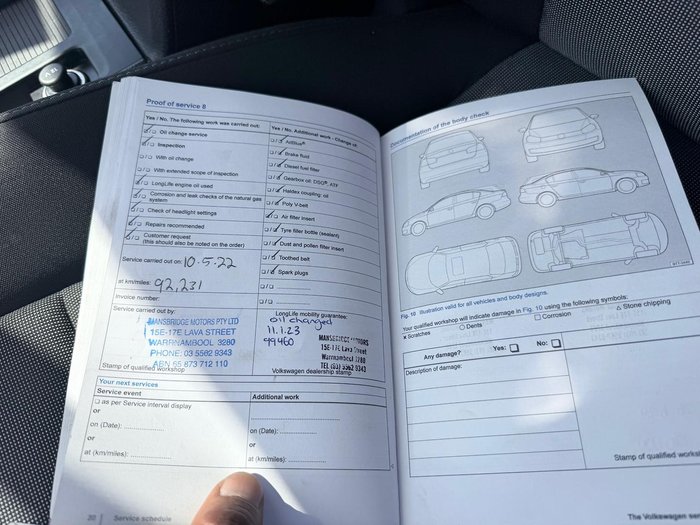 Proof of service 8
Yes / No. The following work was carried out:
☐/☐ Oil change service
☐/☐ Inspection
☐/☐ With oil change
☐/☐ With extended scope of inspection
☐/☐ LongLife engine oil used
☐/☐ Corrosion and leak checks of the natural gas
system
☐/☐ Check of headlight settings
☐/☐ Repairs recommended
☐/☐ Customer request
(this should also be noted on the order)
Service carried out on: 10.5.22
at km/miles: 92,231
Invoice number:
Service carried out by:
MANSBRIDGE MOTORS PTY LTD
15E-17E LAVA STREET
WARRNAMBOOL 3280
PHONE: 03 5562 9343
ABN 55 873 712 110
Stamp of qualified workshop
Yes / No. Additional work - Change of:
☐/☐ AdBlue®
☐/☐ Brake fluid
☐/☐ Diesel fuel filter
☐/☐ Gearbox oil: DSG®, ATF
☐/☐ Haldex coupling: oil
☐/☐ Poly V-belt
☐/☐ Air filter insert
☐/☐ Tyre filler bottle (sealant)
☐/☐ Dust and pollen filter insert
☐/☐ Toothed belt
☐/☐ Spark plugs
☐/☐
☐/☐
LongLife mobility guarantee:
oil changed
11.1.23
99460
15E-17E Lava Street
Warrnambool 3280
TEL (03) 5562 9343
Volkswagen dealership stamp
Your next services
Service event
☐ as per Service interval display
or
on (Date):
or
at (km/miles):
Additional work
on (Date):
or
at (km/miles):
20 Service schedule
Documentation of the body check
Fig. 10 Illustration valid for all vehicles and body designs.
Your qualified workshop will indicate damage in Fig. 10 using the following symbols:
x Scratches ○ Dents ☐ Corrosion △ Stone chipping
Any damage? Yes: ☐ No: ☐
Description of damage:
Stamp of qualified works
The Volkswagen ser